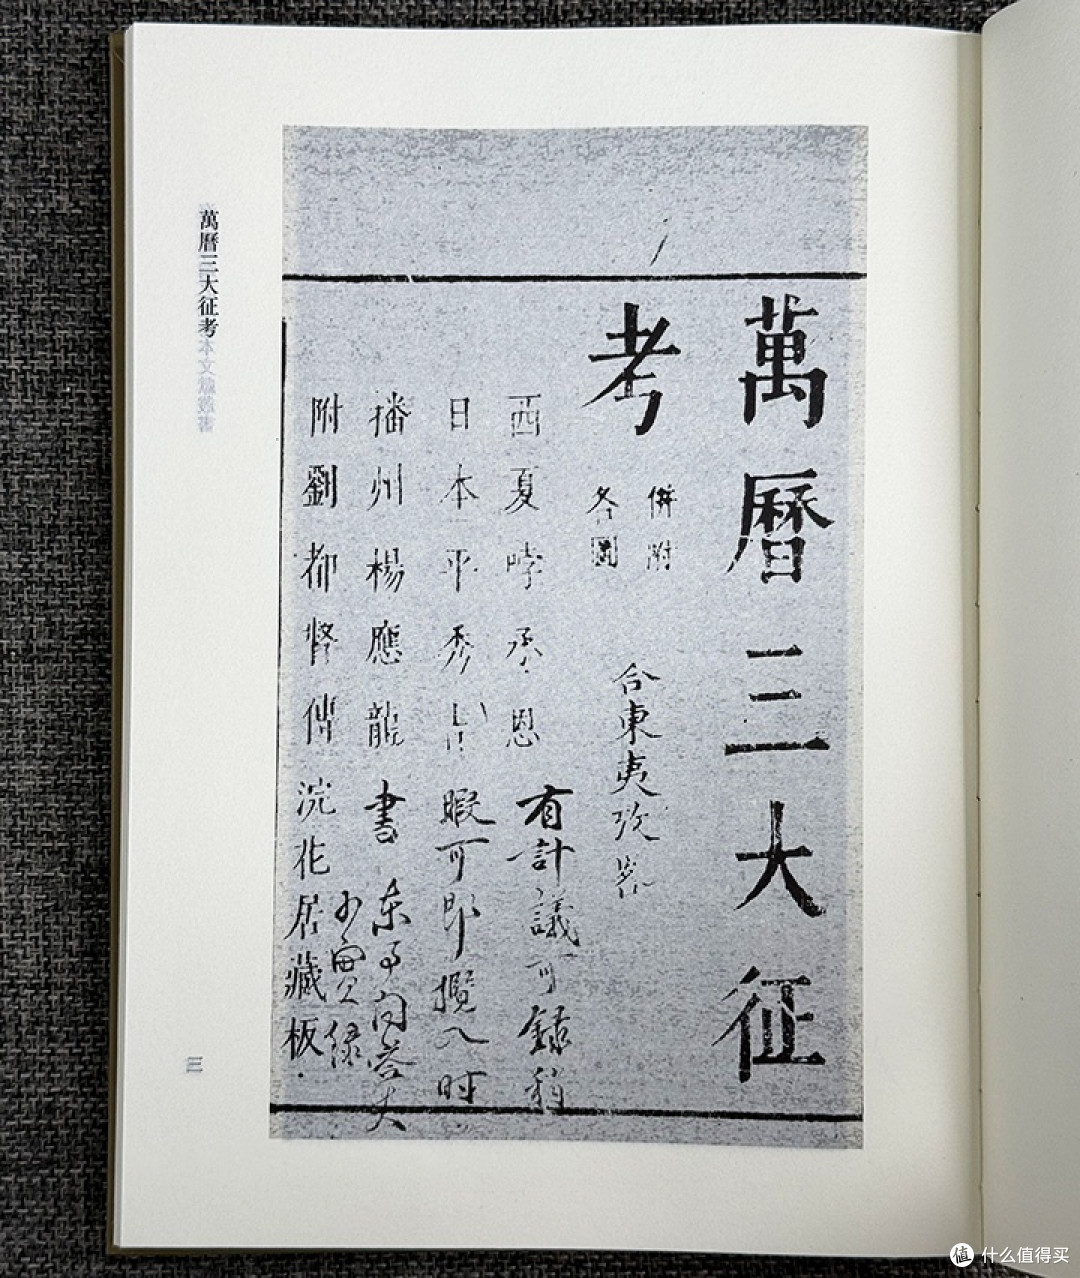 萬曆三大征
考
併附
各圖
合東夷攷
西夏哱承恩
有計議可錄稍
日本平秀吉
暇可即攬入时
播州楊應龍
書
附劉都督傳
浣花居藏板
萬曆三大征考
三
值 什么值得买